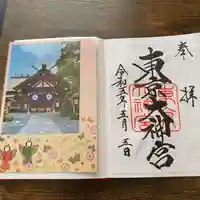 奉拝
東京大神宮
令和五年五月五日